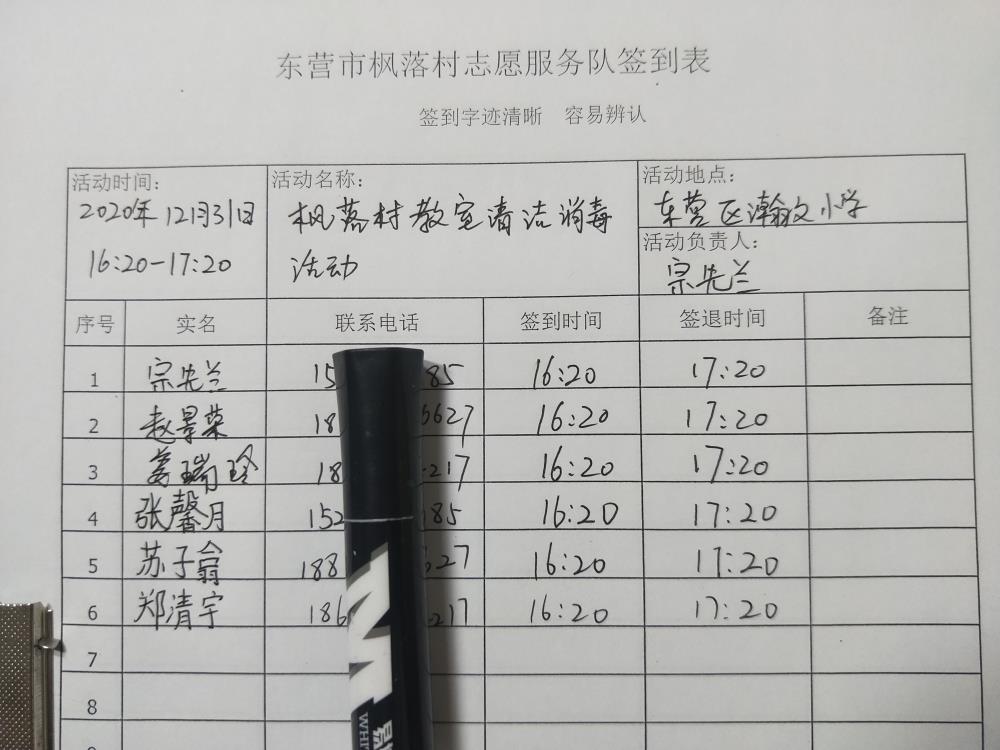 东营市枫落村志愿服务队签到表
签到字迹清晰 容易辨认
活动时间: 活动名称: 活动地点:
2020年12月31日 枫落村教室清洁消毒 东营区瀚文小学
16:20-17:20 活动 活动负责人:
宗先兰
序号 实名 联系电话 签到时间 签退时间 备注
1 宗先兰 15 85 16:20 17:20
2 赵景荣 18 5627 16:20 17:20
3 姜瑞玲 18 217 16:20 17:20
4 张馨月 152 185 16:20 17:20
5 苏子翕 188 627 16:20 17:20
6 郑清宇 186 217 16:20 17:20
7
8